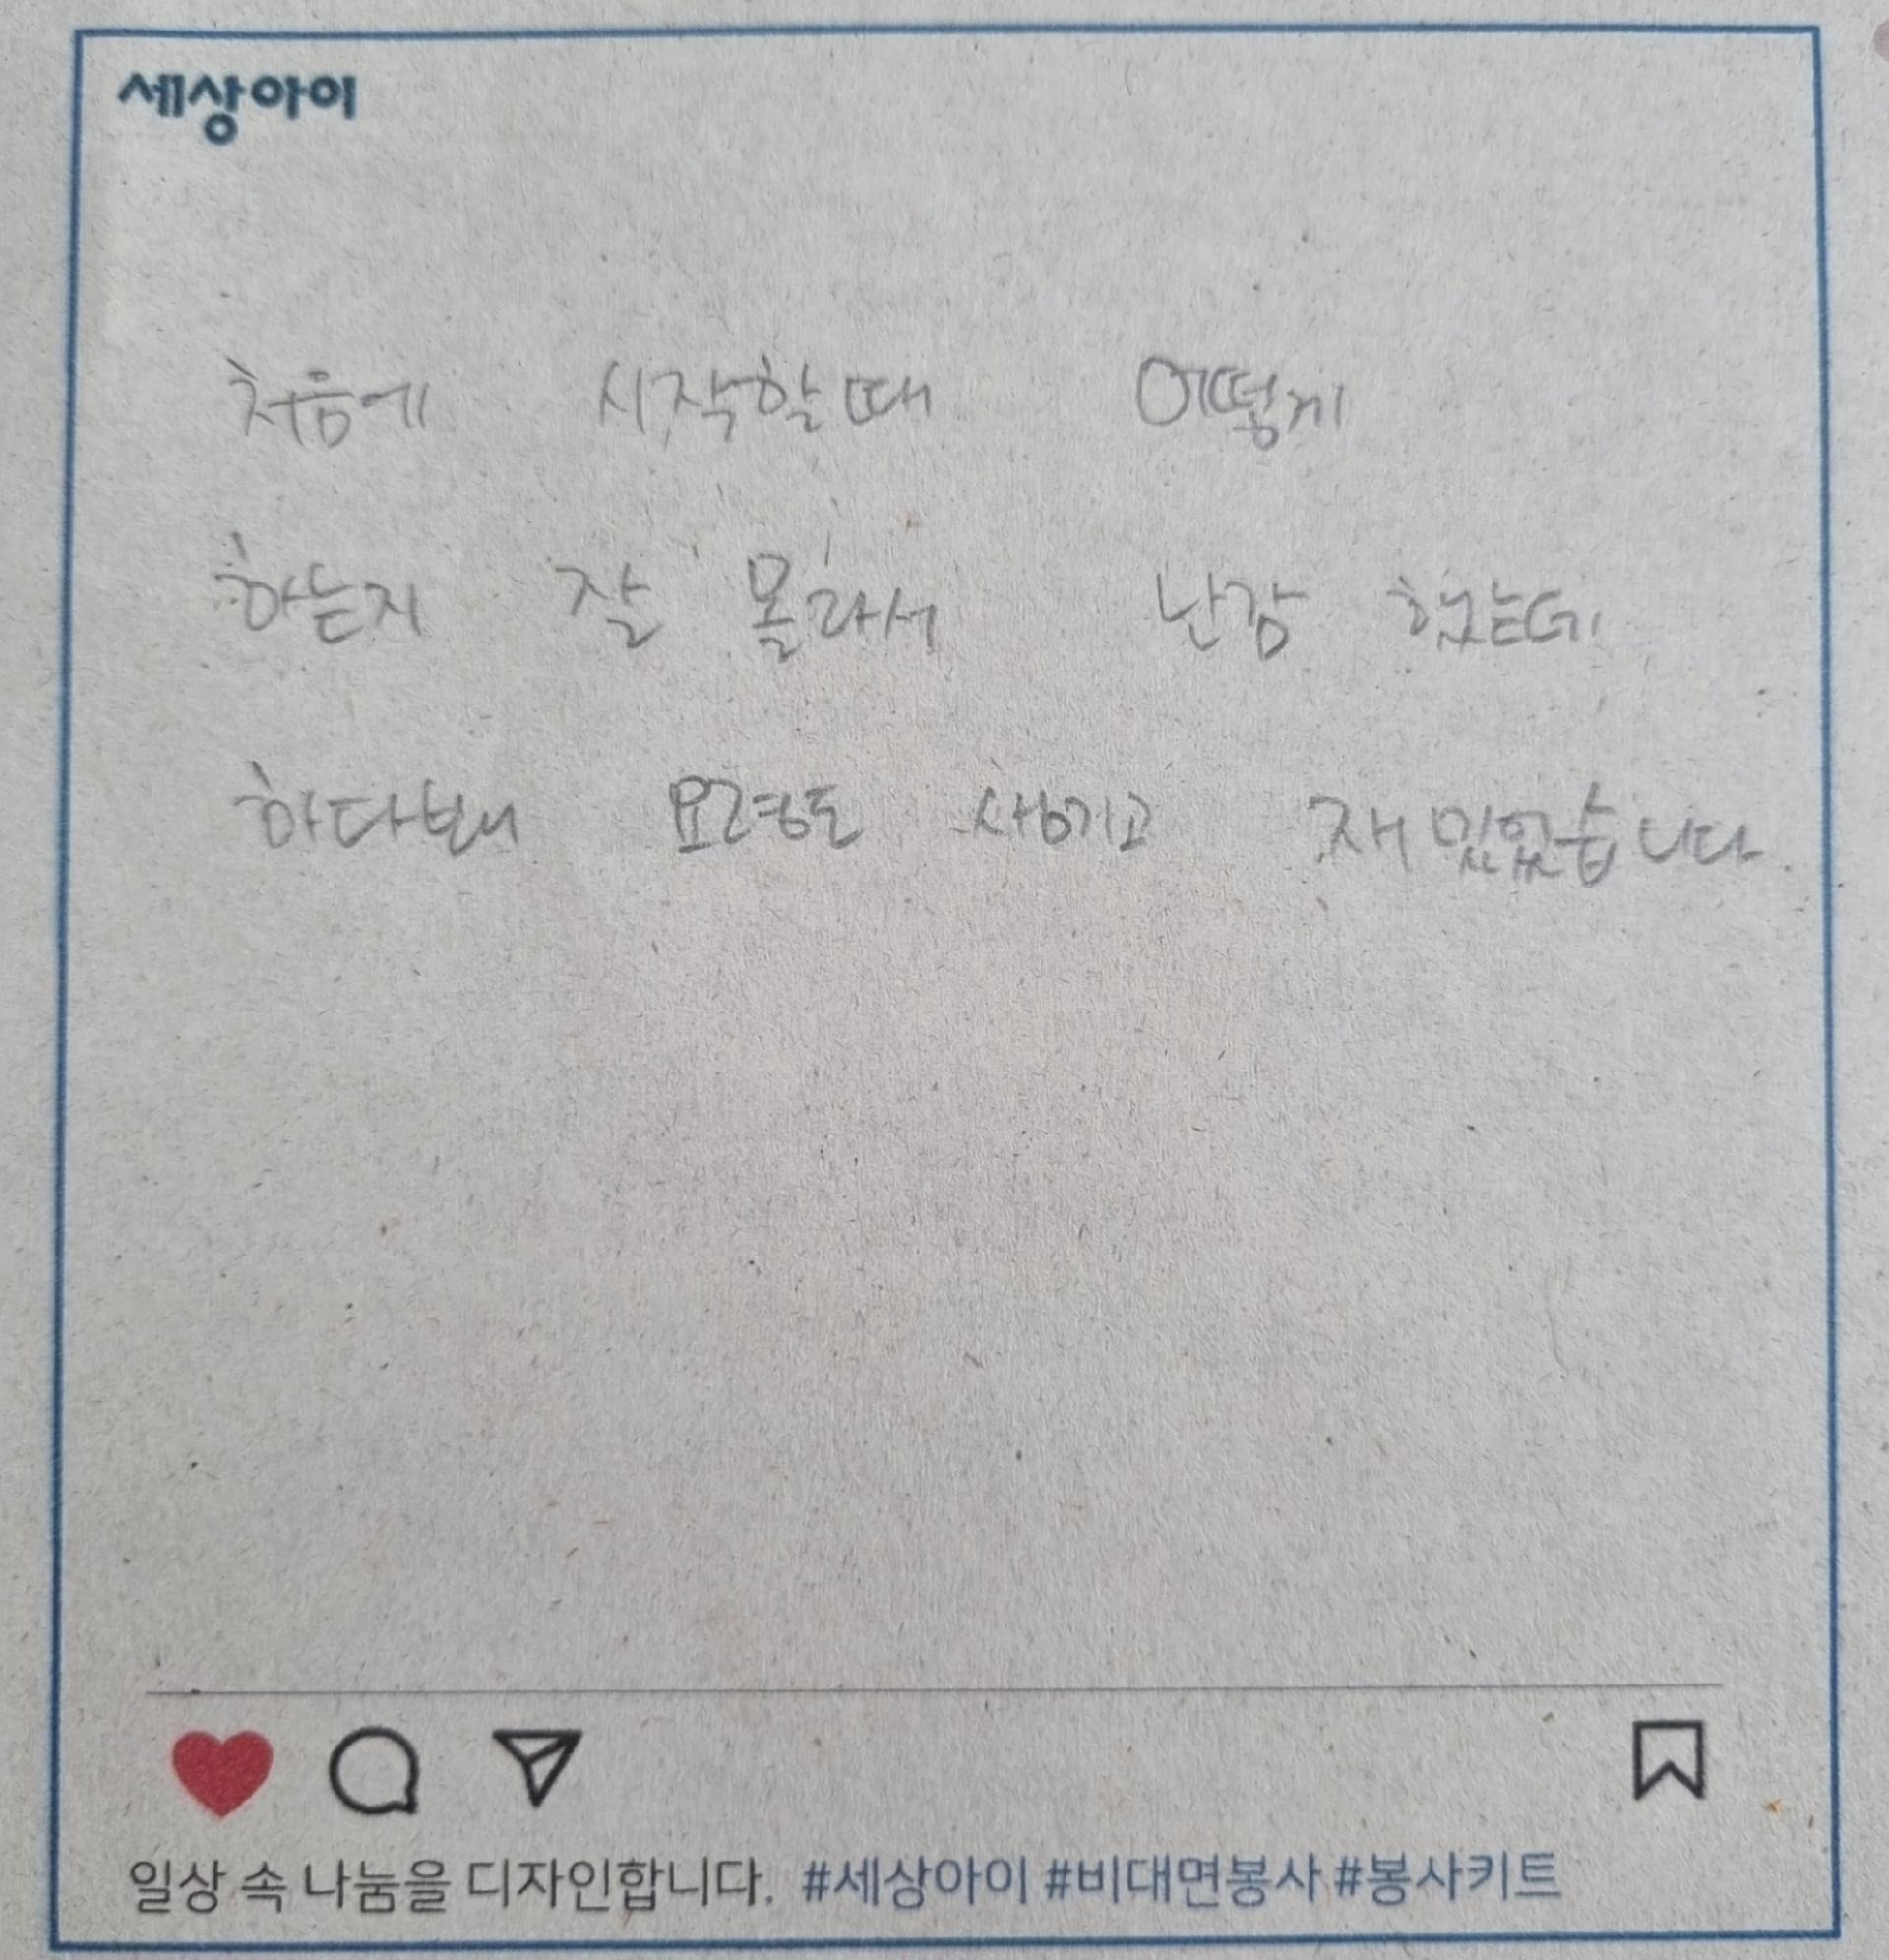 세상아이
처음에 시작할때 어떻게
하는지 잘 몰라서 난감 했는데
하다보니 요령도 생기고 재밌었습니다.
일상 속 나눔을 디자인합니다. #세상아이 #비대면봉사 #봉사키트